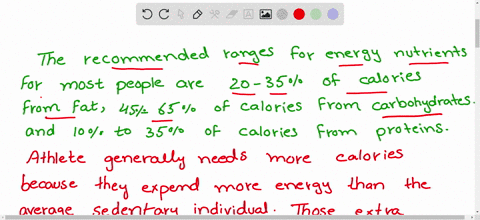 The recommended ranges for energy nutrients
for most people are 20-35% of calories
from fat, 45% 65% of calories from carbohydrates.
and 10% to 35% of calories from proteins.
Athlete generally needs more calories
because they expend more energy than the
average sedentary individual. Those extra